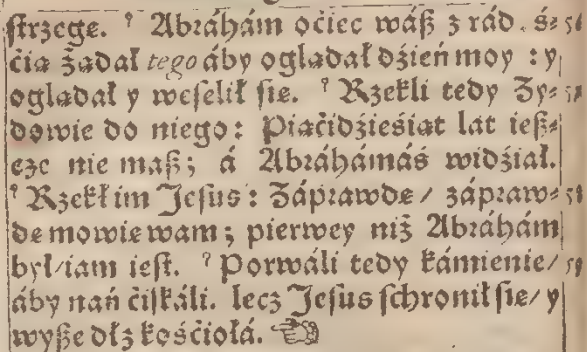 strzege. ʾ Abráhám oćiec wáß z rád. ś⸗ 56
ćią żądał tego áby oglądał dźień moy : y
oglądał y weselił sie. ʾ Rzekli tedy Ży⸗ 57
dowie do niego: Piąćidźieśiąt lat ieß⸗
cze nie maß; á Abráhámáś widźiał.
ʾ Rzekł im Jesus: Záprawdę/ zápraw⸗ 58
dę mowię wam; pierwey niż Abráhám
był/iam iest. ʾ Porwáli tedy kámienie/ 59
áby nań ćiskáli. lecz Jesus schronił się/ y
wyße dł z kośćiołá. ☜